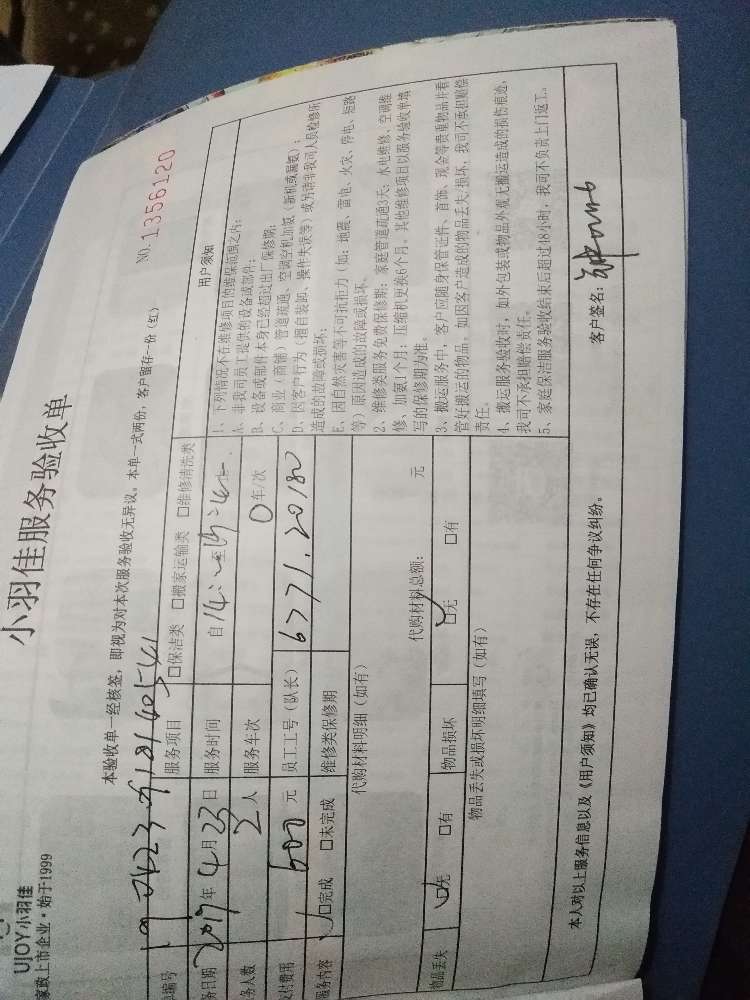 UJOY小羽佳
家政上市企业·始于1999
小羽佳服务验收单
本验收单一经核签，即视为对本次服务验收无异议。本单一式两份，客户留存一份（红）
NO. 1356120
单编号
服务项目 □保洁类 □搬家运输类 □维修清洗类
务日期 2019年4月23日 服务时间 自 至
务人数 2人 服务车次 0车/次
支付费用 600元 员工工号（队长） 6771.20180
服务内容 □完成 □未完成 维修类保修期
代购材料明细（如有） 代购材料总额： 元
物品丢失 □无 □有 物品损坏 □无 □有
物品丢失或损坏明细填写（如有）
用户须知
1、下列情况不在维修项目的维保范围之内：
A、非我司员工提供的设备或部件；
B、设备或部件本身已经超过出厂保修期；
C、商业（商铺）管道疏通、空调空机加氨（新机或漏氨）；
D、因客户行为（擅自装卸、操作失误等）或另请非我司人员检修所
造成的故障或损坏；
E、因自然灾害等不可抗拒力（如：地震、雷电、火灾、停电、短路
等）原因造成的故障或损坏。
2、维修类服务免费保修期：家庭管道疏通3天；水电维修、空调维
修、加氨1个月；压缩机更换6个月，其他维修项目以服务验收单填
写的保修期为准。
3、搬运服务中，客户应随身保管证件、首饰、现金等贵重物品并看
管好搬运的物品，如因客户造成的物品丢失/损坏，我司不承担赔偿
责任。
4、搬运服务验收时，如外包装或物品外观无搬运造成的损伤痕迹，
我司不承担赔偿责任。
5、家庭保洁服务验收结束后超过48小时，我司不负责上门返工。
本人对以上服务信息以及《用户须知》均已确认无误，不存在任何争议纠纷。
客户签名：